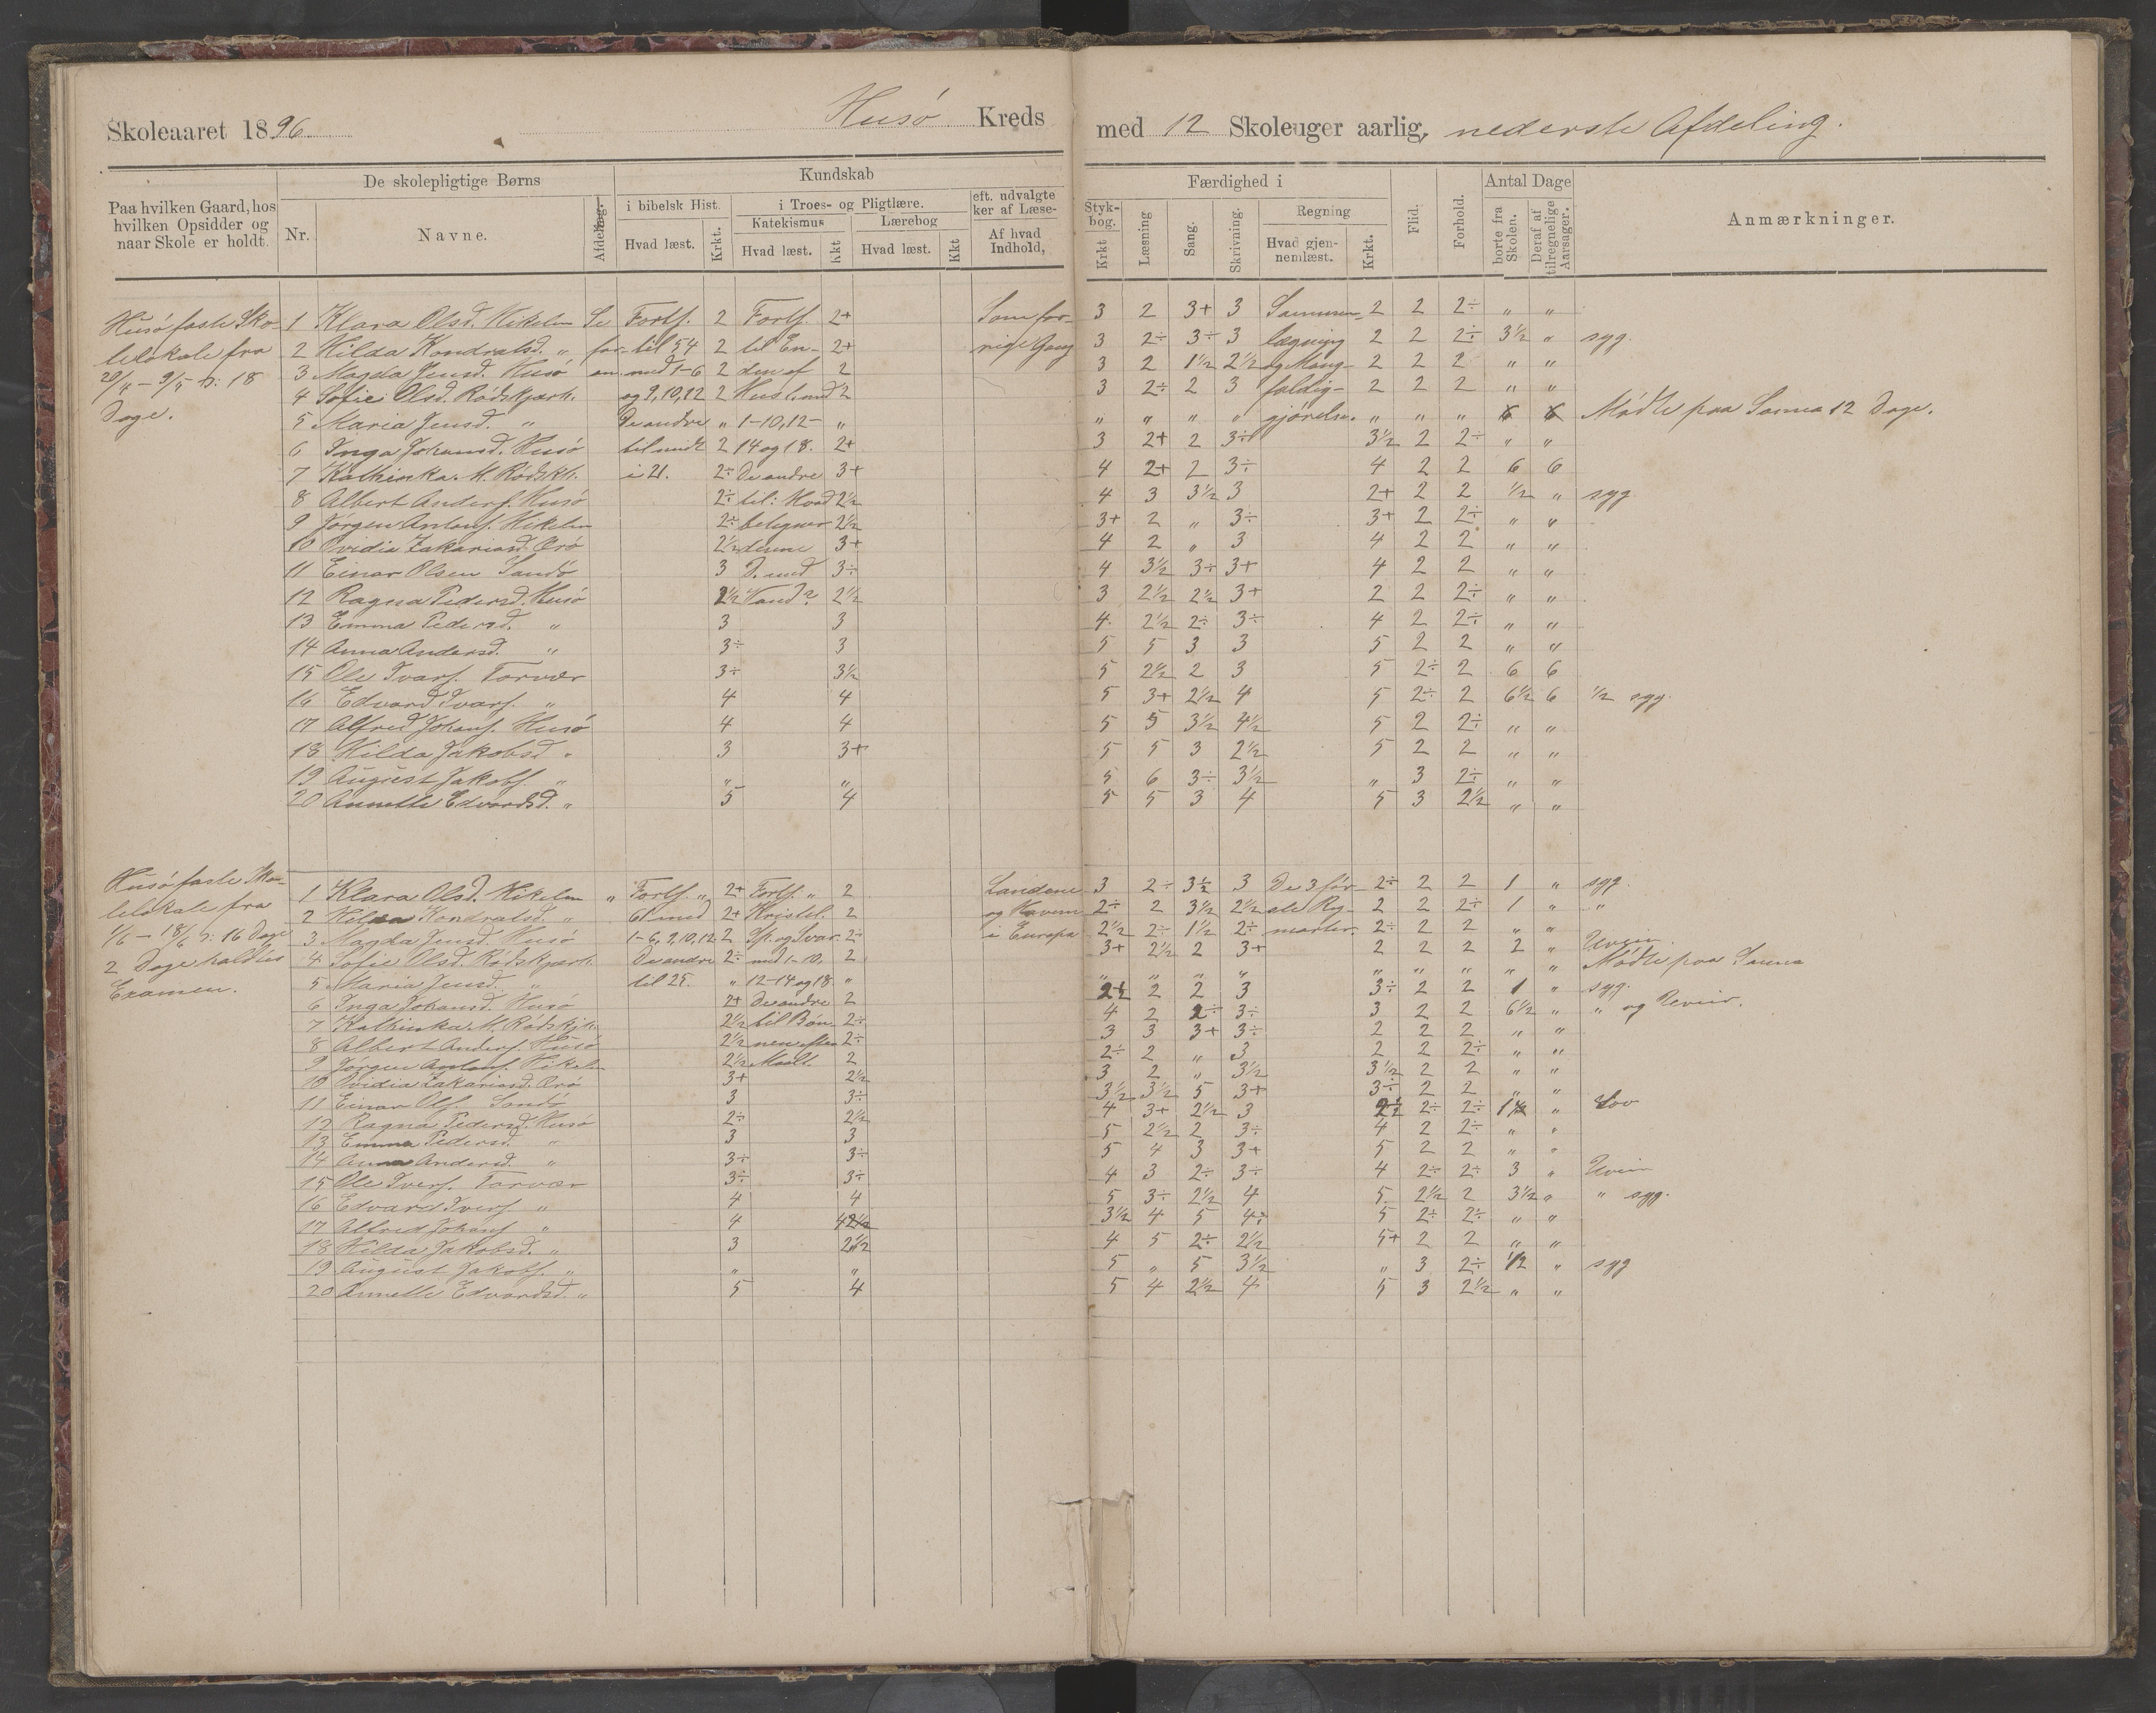 Skoleaaret 1896 Husö Kreds med 12 Skoleuger aarlig, nederste Afdeling.
Paa hvilken Gaard, hos hvilken Opsidder og naar Skole er holdt.
De skolepligtige Børns
Nr. Navne. Afdeling.
Kundskab
i bibelsk Hist. Hvad læst. Krkt.
i Troes- og Pligtlære.
Katekismus Hvad læst. kkt
Lærebog Hvad læst. Kkt
eft. udvalgte ker af Læse-
Af hvad Indhold,
Styk- bog. Krkt
Færdighed i
Læsning Sang. Skrivning.
Regning Hvad gjennemlæst. Krkt.
Flid. Forhold.
Antal Dage
borte fra Skolen. Deraf af tilregnelige Aarsager.
Anmærkninger.
Husö faste Sko-
lelokale fra
20/4 - 9/5 : 18
Dage.
1 Klara Olsd. Hikelen Se Forts. 2 Forts. 2+ Som for- 3 2 3+ 3 Sammen- 2 2 2÷ " "
2 Hilda Kondratsd. " for- til 54 2 til En- 2+ rige Gang 3 2÷ 3÷ 3 lægning 2 2 2÷ 3½ " syg.
3 Magda Jensd. Husö an. med 1-6 2 den af 2 3 2 1½ 2½ og Mang- 2 2 2 " "
4 Sofie Olsd. Rödskjærh. og 9,10,12 2 Hus l. med 2 3 2÷ 2 3 foldig- 2 2 2 " "
5 Maria Jensd. " De andre " 1-10,12- " " " " " gjörelse. " " " 6 6 Mödte paa Sanna 12 Dage.
6 Inga Johansd. Husö til midt 2 14 og 18. 2+ 3 2+ 2 3÷ 3½ 2 2÷ " "
7 Kathinka M. Rödskh. i 21. 2÷ De andre 3+ 4 2+ 2 3÷ 4 2 2 6 6
8 Albert Anders. Husö 2÷ til: Hvad 2½ 4 3 3½ 3 2+ 2 2 ½ " syg.
9 Jörgen Antons. Hikelen 2÷ betegner 2½ 3+ 2 " 3÷ 3+ 2 2÷ " "
10 Ovidia Zakariasd. Örö 2½ denne 3+ 4 2 " 3 4 2 2 " "
11 Einar Olsen Sandö 3 D. med 3÷ 4 3½ 3÷ 3+ 4 2 2 " "
12 Ragna Pedersd. Husö 2½ Vand? 2½ 3 2½ 2½ 3+ 2 2 2÷ " "
13 Emma Pedersd. " 3 3 4 2½ 2÷ 3÷ 4 2 2÷ " "
14 Anna Andersd. " 3÷ 3 5 5 3 3 5 2 2 " "
15 Ole Ivars. Torvær 3÷ 3½ 5 2½ 2 3 5 2÷ 2 6 6
16 Edvard Ivars. " 4 4 5 3+ 2½ 4 5 2÷ 2 6½ 6 ½ syg.
17 Alfred Johans. Husö 4 4 5 5 3½ 4½ 5 2 2÷ " "
18 Hilda Jakobsd. " 3 3+ 5 5 3 2½ 5 2 2 " "
19 August Jakobs. " " " 5 6 3÷ 3½ " 3 2÷ " "
20 Annette Edvardsd. " 5 4 5 5 3 4 5 3 2½ " "
Husö faste Sko-
lelokale fra
1/6 - 18/6 : 16 Dage
2 Dage holdtes
Examen.
1 Klara Olsd. Hikelen " Forts. " 2+ Forts. " 2 Landene 3 2÷ 3½ 3 De 3 för- 2÷ 2 2 1 " syg.
2 Hilda Kondratsd. " 61 med 2+ Kristel. 2 og Havene 2÷ 2 3½ 2½ ste Reg- 2 2 2÷ 1 " "
3 Magda Jensd. Husö 1-6, 9,10,12 2 Sp. og Svar. 2÷ i Europa 2½ 2÷ 1½ 2÷ ningsarter. 2÷ 2 2 " "
4 Sofie Olsd. Rödskjærh. De andre 2÷ med 1-10, 2 3+ 2½ 2 3+ 2 2 2 2 " Uveir.
5 Maria Jensd. " til 25. " 12-14 og 18. " " " " " " " " " " Mödte paa Sanna
6 Inga Johansd. Husö 2+ De andre 2 2½ 2 2 3 3÷ 2 2 1 " syg.
7 Kathinka M. Rödskjh. 2½ til Bön- 2÷ 4 2 2÷ 3÷ 3 2 2 6½ " " og Uveir.
8 Albert Anders. Husö 2½ nen efter 2÷ 3 3 3+ 3÷ 2 2 2 " "
9 Jörgen Antons. Hikelen 2½ Maalt. 2 2÷ 2 " 3 2 2 2÷ " "
10 Ovidia Zakariasd. Örö 3+ 2½ 3 2 " 3½ 3½ 2 2 " "
11 Einar Ols. Sandö 3 3÷ 3½ 3½ 5 3+ 3÷ 2 2 " "
12 Ragna Pedersd. Husö 2÷ 2½ 4 3+ 2½ 3 2½ 2÷ 2÷ 1½ " Lov
13 Emma Pedersd. " 3 3 5 2½ 2 3÷ 4 2 2÷ " "
14 Anna Andersd. " 3÷ 3÷ 5 4 3 3+ 5 2 2 " "
15 Ole Ivers. Torvær 3÷ 3÷ 4 3 2÷ 3÷ 4 2÷ 2÷ 3 " Uveir
16 Edvard Ivers. " 4 4 5 3÷ 2½ 4 5 2½ 2 3½ " " syg.
17 Alfred Johans. " 4 4 3½ 4 5 4÷ 5 2÷ 2÷ " "
18 Hilda Jakobsd. " 3 2½ 4 5 2÷ 2½ 5+ 2 2 " "
19 August Jakobs. " " " 5 " 5 3½ " 3 2÷ ½ " syg
20 Annette Edvardsd. " 5 4 5 4 2½ 4 5 3 2½ " "